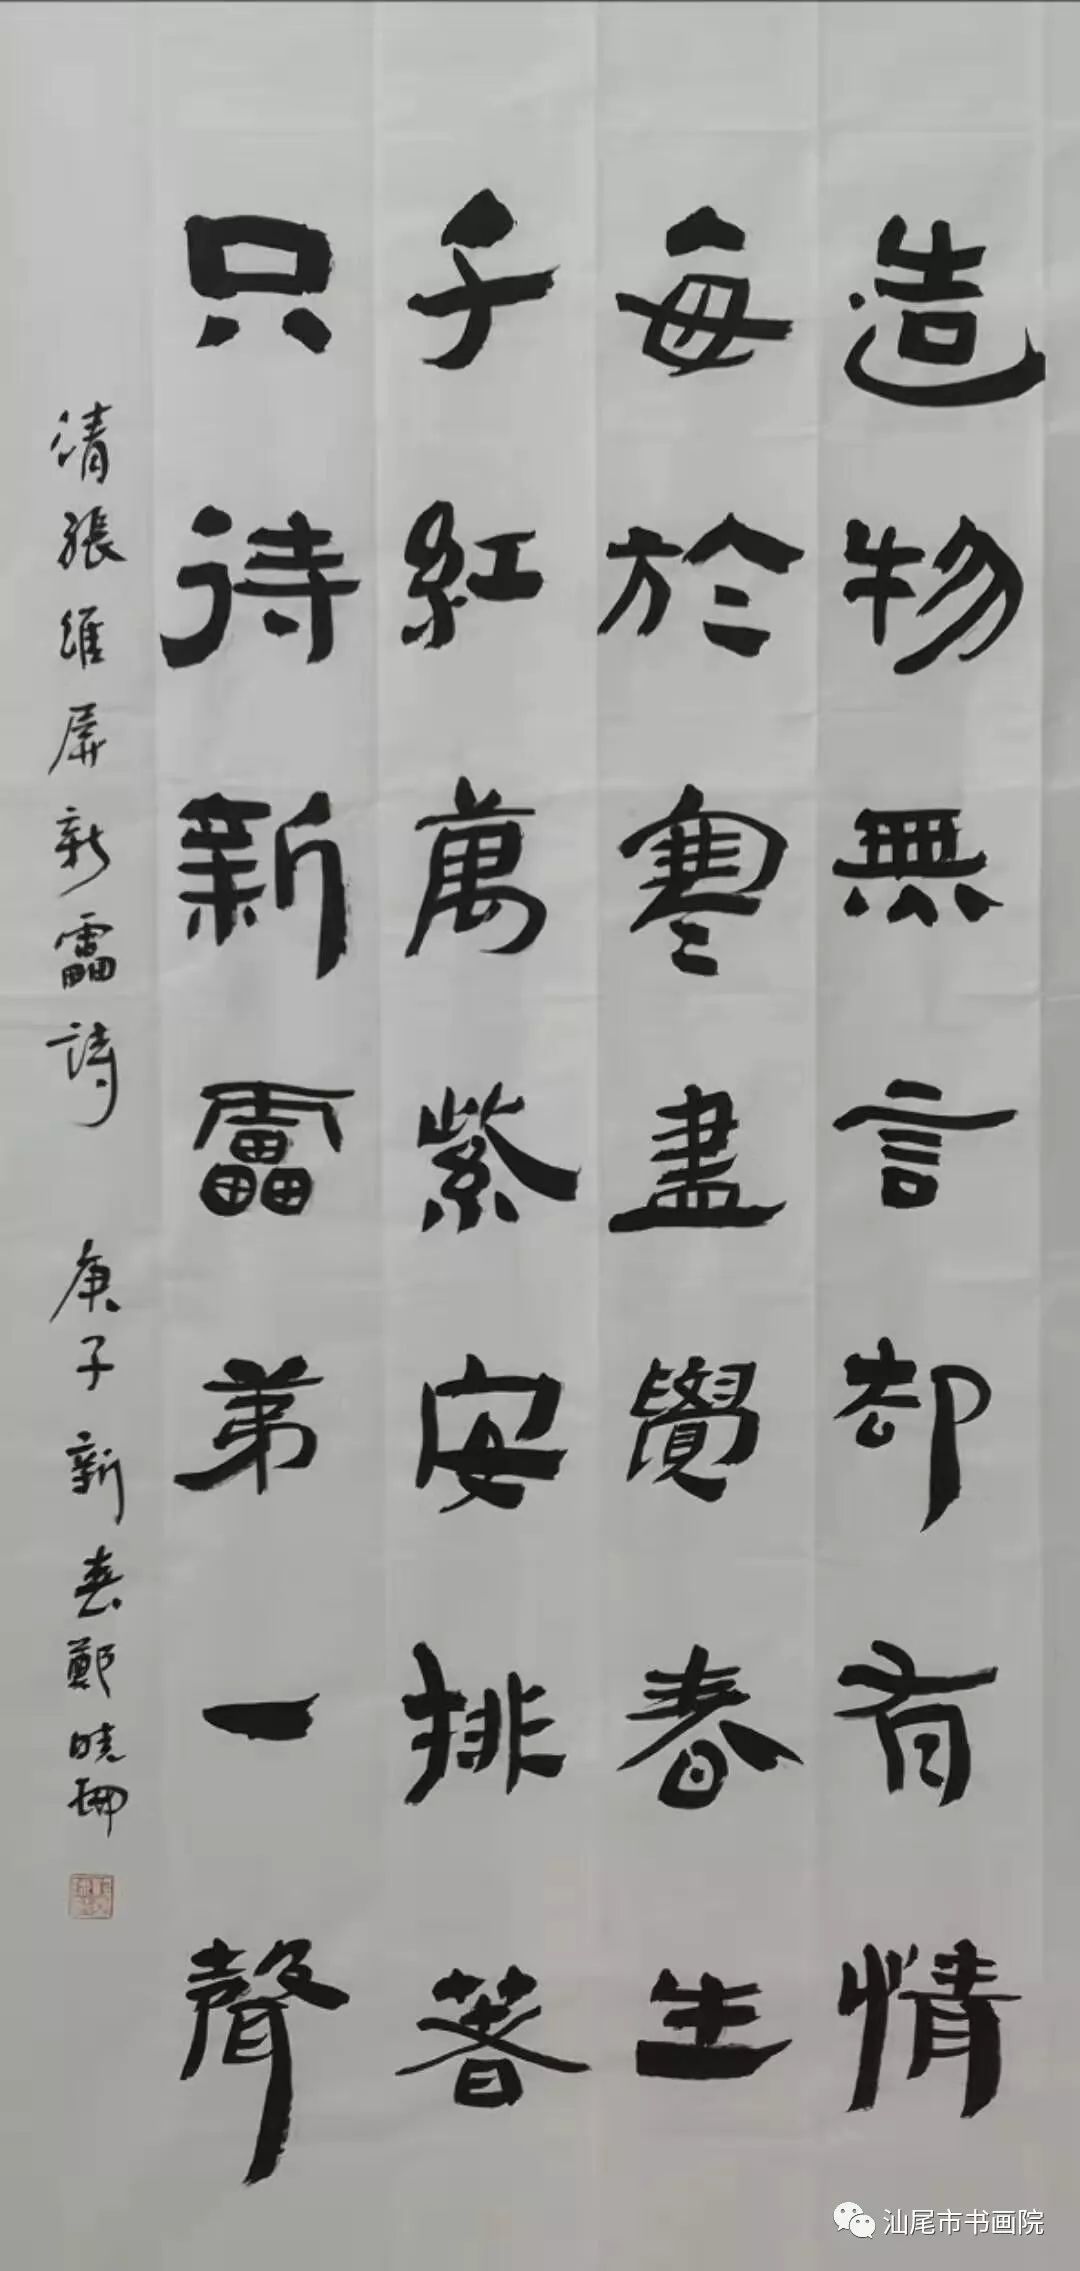 造物無言却有情
每於寒盡覺春生
千紅萬紫安排著
只待新靁第一聲
清張維屏新靁詩 庚子新春鄭曉珊
汕尾市书画院